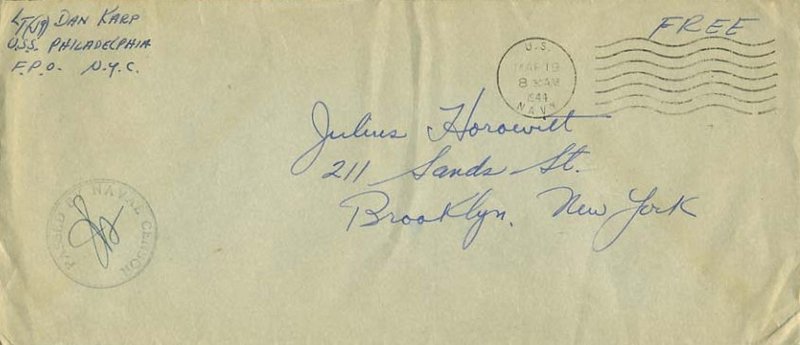 LT(jg) DAN KARP
U.S.S. PHILADELPHIA
F.P.O. N.Y.C.
FREE
U.S.
MAR 19
8 30 AM
1944
NAVY
Julius Horowitt
211 Sands St.
Brooklyn, New York
PASSED BY NAVAL CENSOR